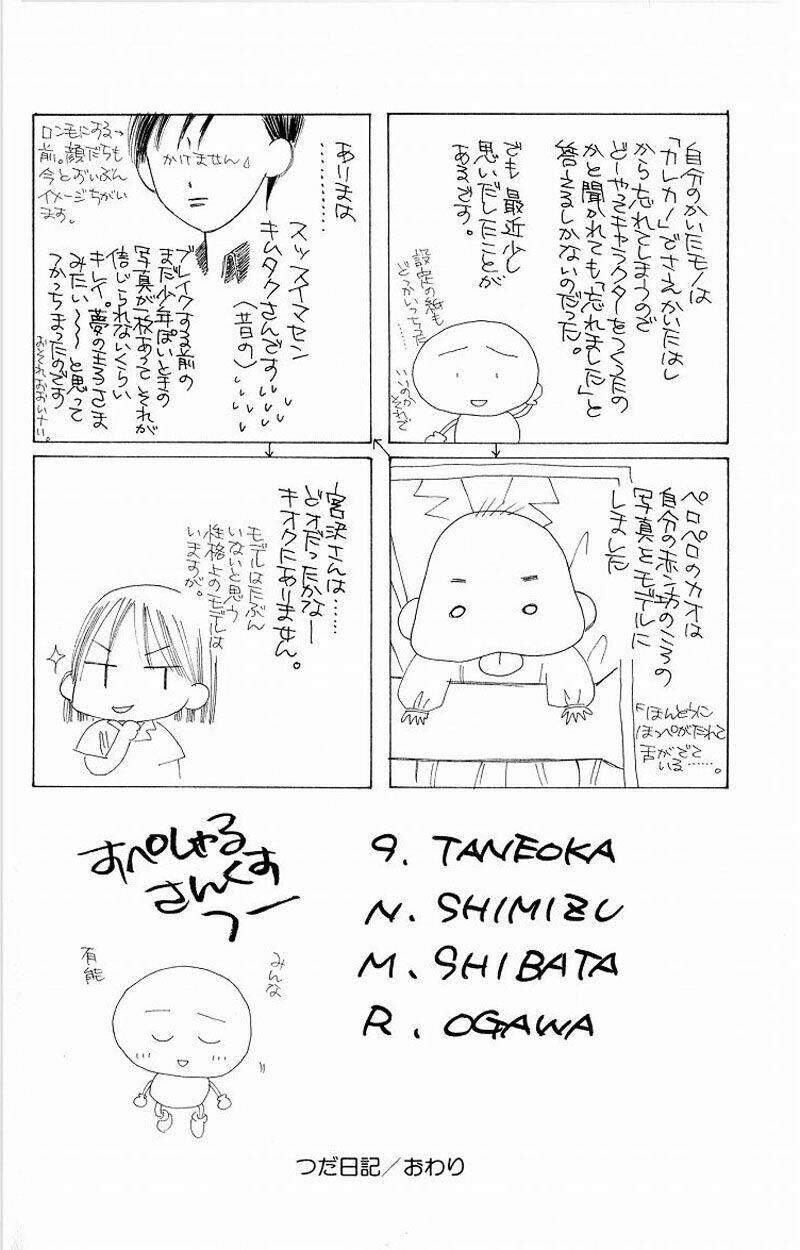 自分のかいたモノは
「カレカノ」でさえかいたはし
から忘れてしまうので
どーやってキャラクターをつくったの
かと聞かれても「忘れました」と
答えるしかないのだった。
でも 最近少し
思いだしたことが
あるです。
設定の紙も
どっかいっちゃった
ペロペロのカオは
自分の赤ン坊のころの
写真をモデルに
しました
ほんとうに
ほっぺがたれて
舌がでて
いる……。
ありまは
…………
スッスイマセン
キムタクさんです
(昔の)
ブレイクする前の
まだ少年ぽいときの
写真が一枚あって それが
信じられないくらい
キレイ。夢の王子さま
みたい〜〜と思って
つかっちまったのです
おそれおおいナイ。
かけません
ロン毛にする
前。顔だちも
今とだいぶん
イメージちがい
ます。
宮沢さんは……
どォだったかなー
キオクにありません。
モデルはたぶん
いないと思う
性格上のモデルは
いますが。
すぺしゃる
さんくす
つー
9. TANEOKA
N. SHIMIZU
M. SHIBATA
R. OGAWA
みんな
有能
つだ日記／おわり